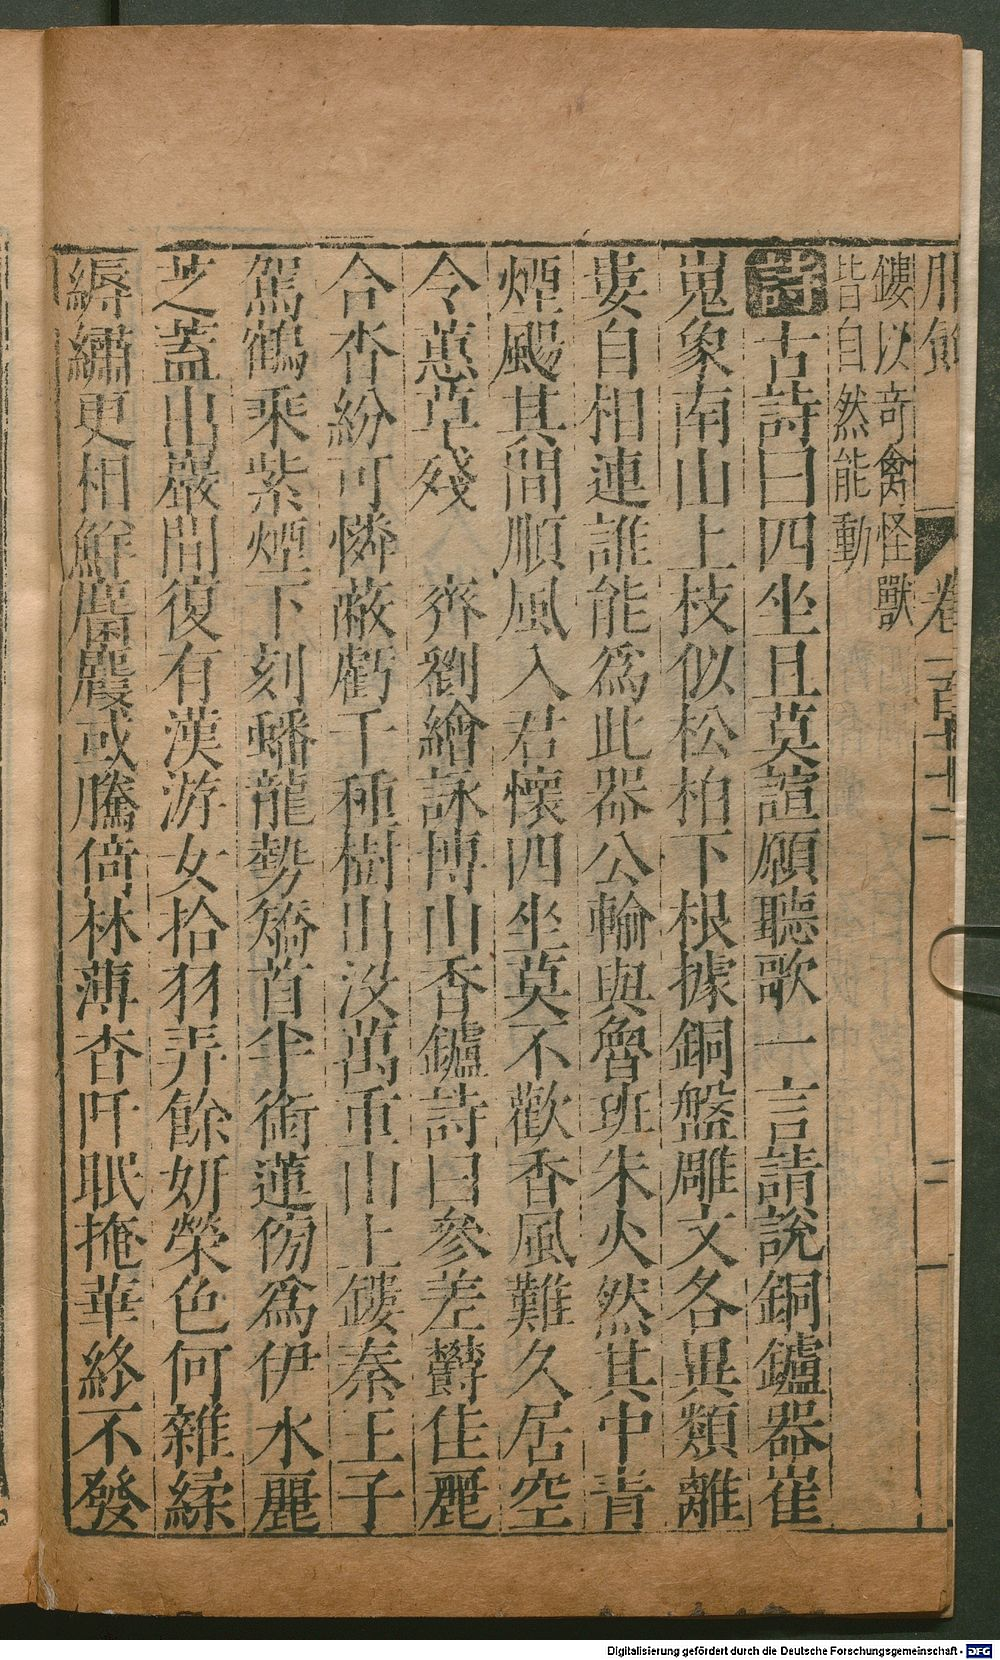 服飾 卷二百十二 二
鏤以奇禽怪獸
皆自然能動
詩 古詩曰四坐且莫諠願聽歌一言請說銅鑪器崔
嵬象南山上枝似松柏下根據銅盤雕文各異類離
婁自相連誰能爲此器公輸與魯班朱火然其中青
煙颺其間順風入君懷四坐莫不歡香風難久居空
令蕙草殘 齊劉繪詠博山香鑪詩曰參差鬱佳麗
合沓紛可憐蔽虧千種樹出沒萬重山上鏤秦王子
駕鶴乘紫煙下刻蟠龍勢矯首半銜蓮傍爲伊水麗
芝蓋出巖間復有漢游女拾羽弄餘妍榮色何雜緑
縟繡更相鮮麏麚或騰倚林薄杳阡眠掩華終不發
Digitalisierung gefördert durch die Deutsche Forschungsgemeinschaft - DFG